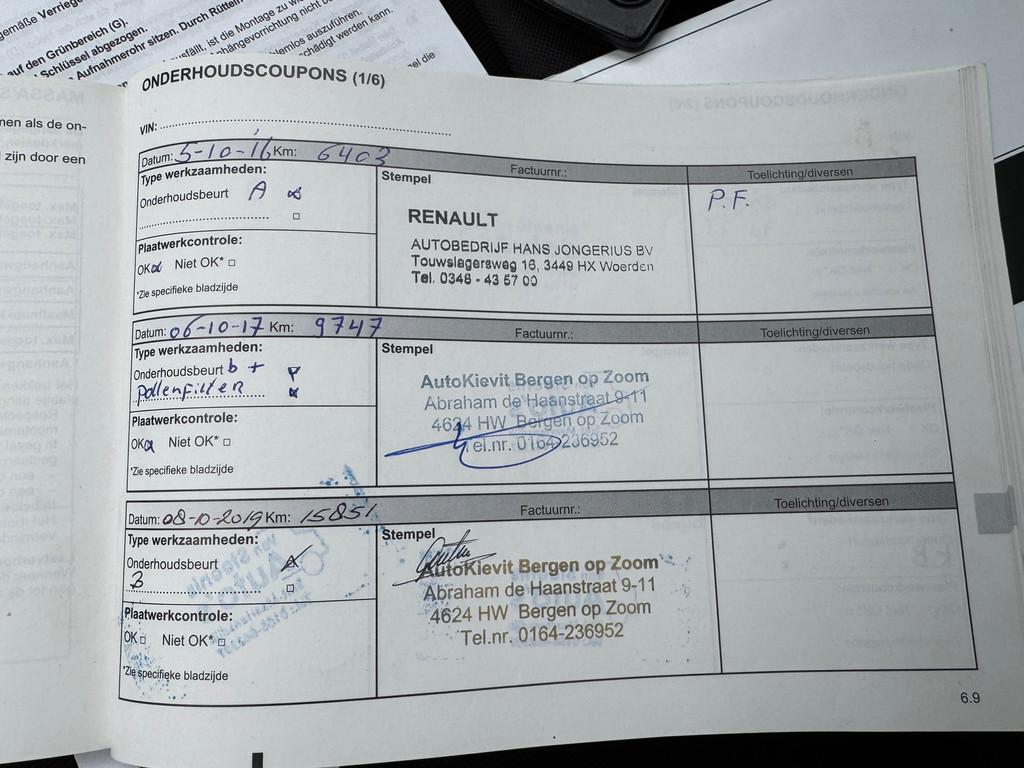 gemäße Verriege
auf den Grünbereich (G).
Schlüssel abgezogen.
Aufnahmerohr sitzen. Durch Rütteln
ausfällt, ist die Montage zu wie
nhängevorrichtung nicht be
emlos auszuführen.
schädigt werden kann.
gel die
men als de on-
zijn door een
ONDERHOUDSCOUPONS (1/6)
VIN:
Datum: 5-10-'16 Km: 6403
Factuurnr.:
Toelichting/diversen
Type werkzaamheden:
Onderhoudsbeurt A
Stempel
P.F.
RENAULT
AUTOBEDRIJF HANS JONGERIUS BV
Touwslagersweg 16, 3449 HX Woerden
Tel. 0348 - 43 57 00
Plaatwerkcontrole:
OK Niet OK*
*Zie specifieke bladzijde
Datum: 06-10-17 Km: 9747
Factuurnr.:
Toelichting/diversen
Type werkzaamheden:
Onderhoudsbeurt b +
pollenfilter
Stempel
AutoKievit Bergen op Zoom
Abraham de Haanstraat 9-11
4624 HW Bergen op Zoom
Tel.nr. 0164-236952
Plaatwerkcontrole:
OK Niet OK*
*Zie specifieke bladzijde
Datum: 08-10-2019 Km: 15851
Factuurnr.:
Toelichting/diversen
Type werkzaamheden:
Onderhoudsbeurt A
B
Stempel
AutoKievit Bergen op Zoom
Abraham de Haanstraat 9-11
4624 HW Bergen op Zoom
Tel.nr. 0164-236952
Plaatwerkcontrole:
OK Niet OK*
*Zie specifieke bladzijde
6.9